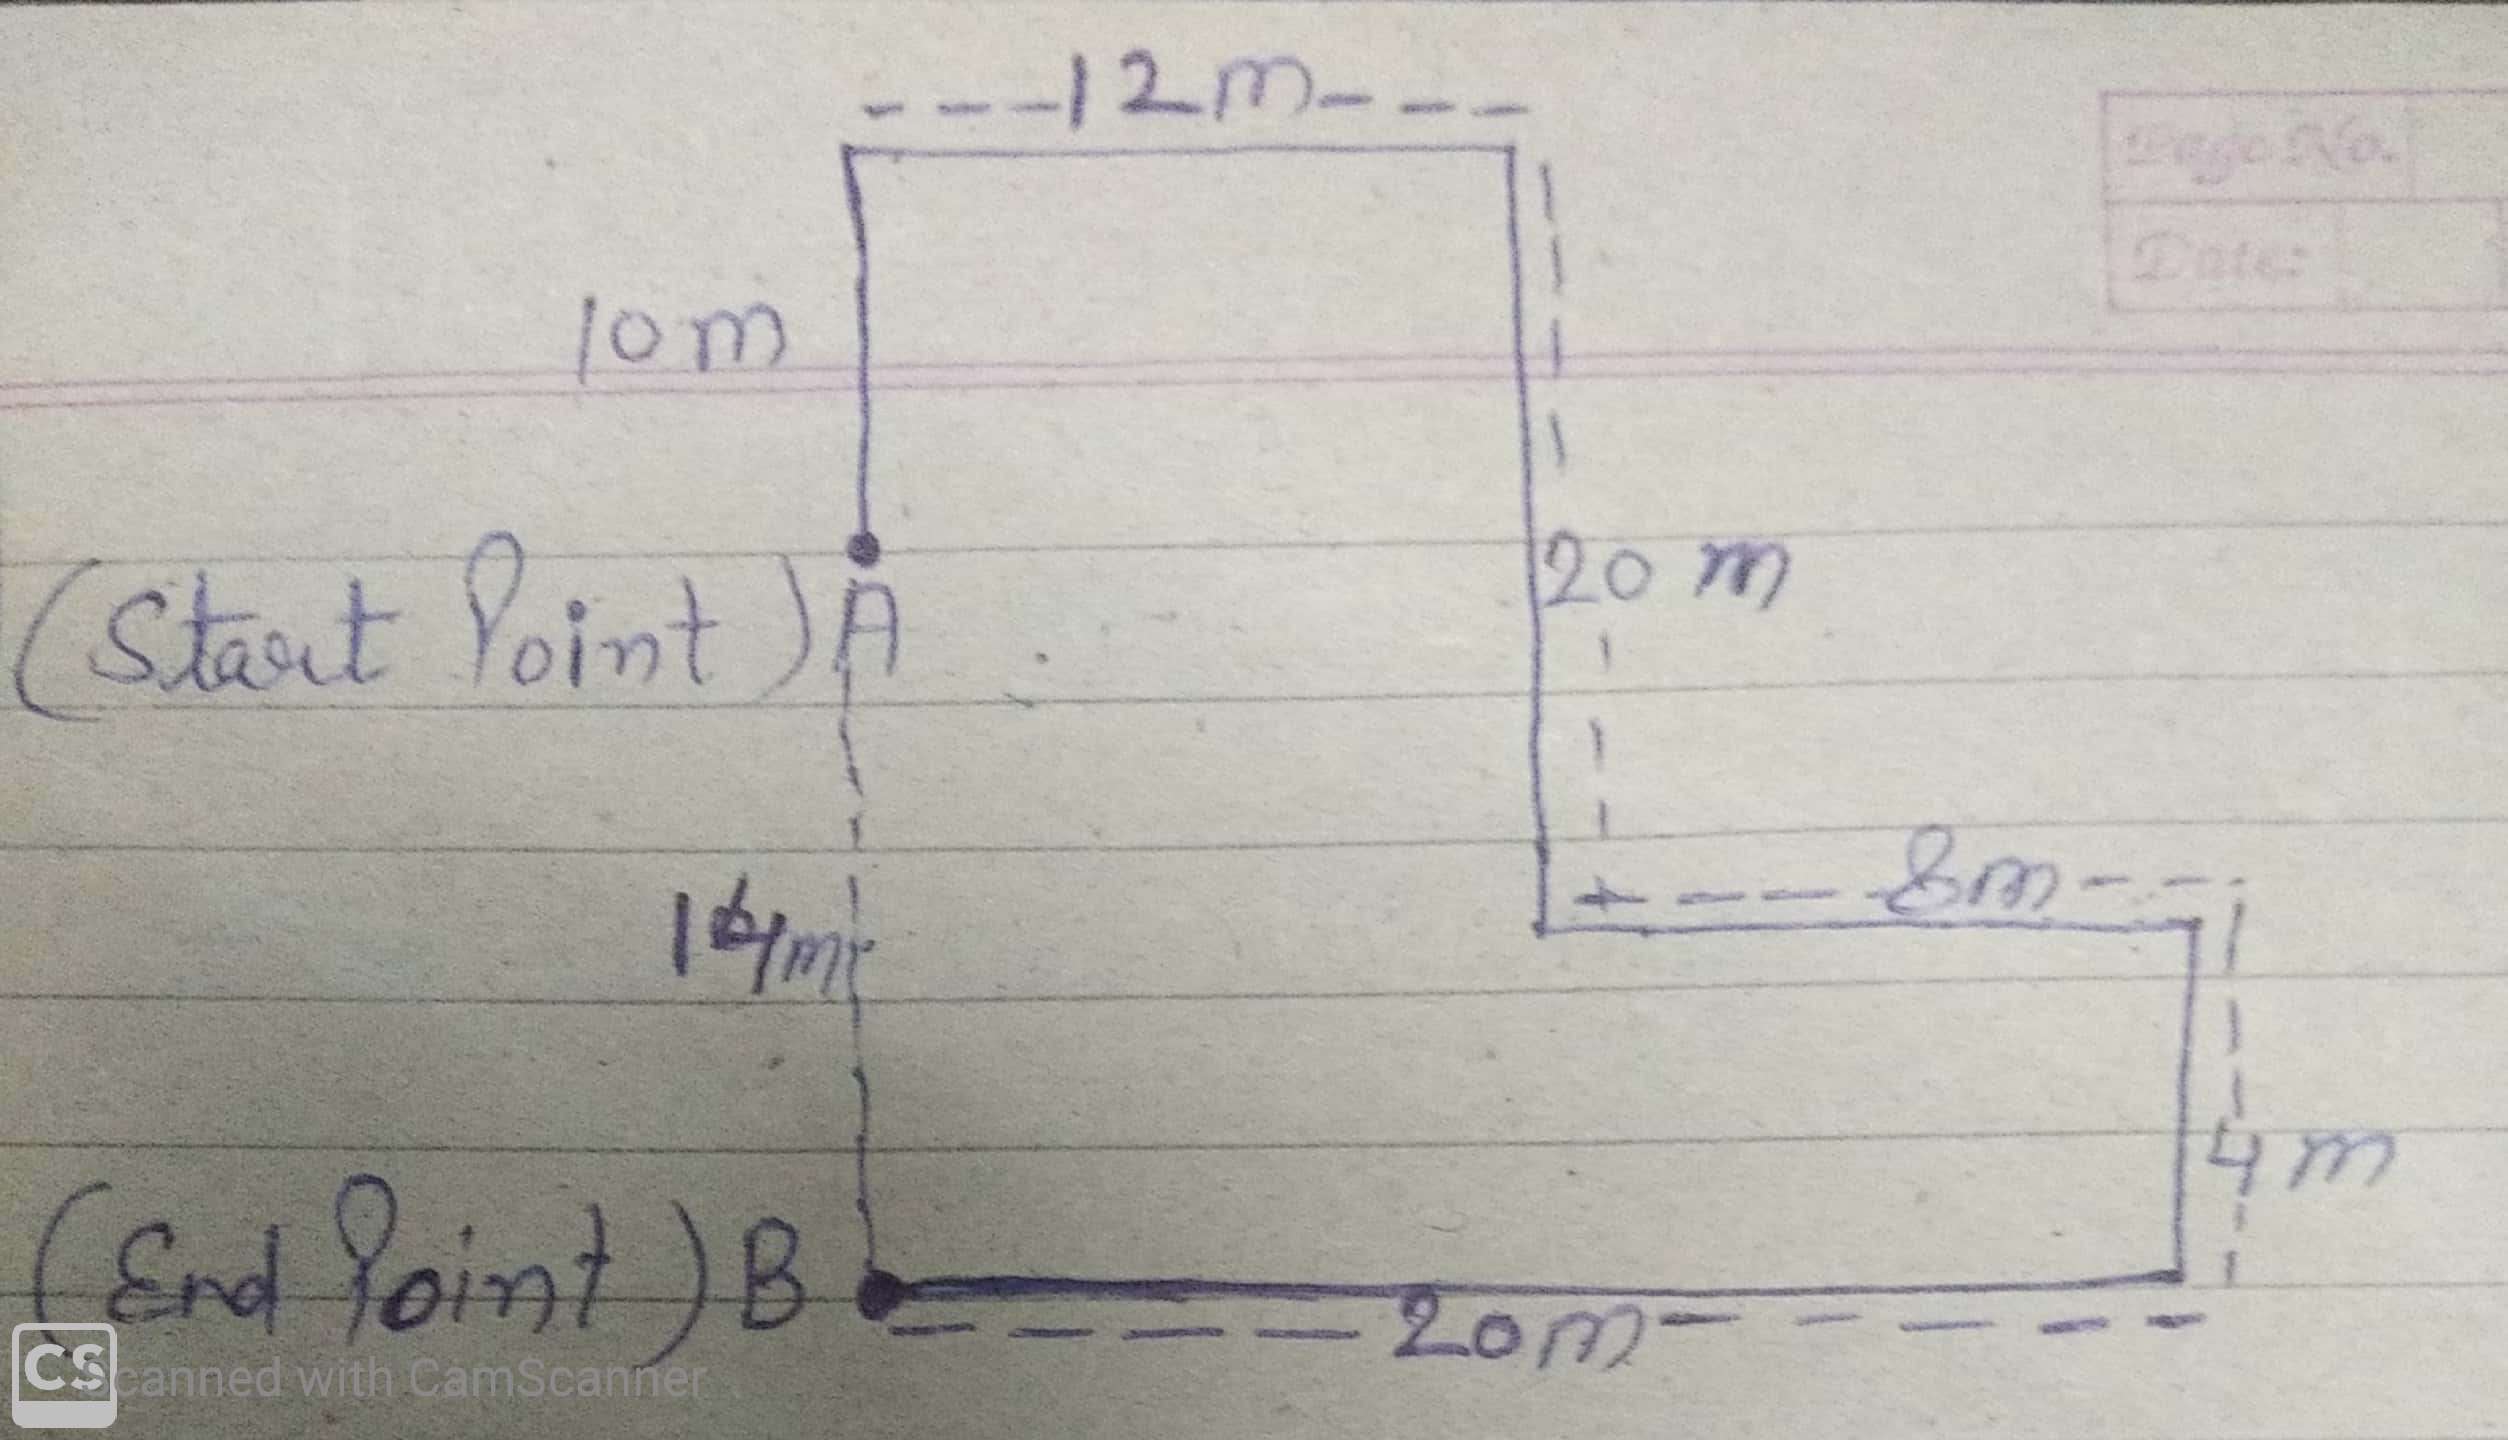 12m
Page No.
Date:
10m
(Start Point) A
20 m
8m
14m
4m
(End Point) B
20m
CS Scanned with CamScanner